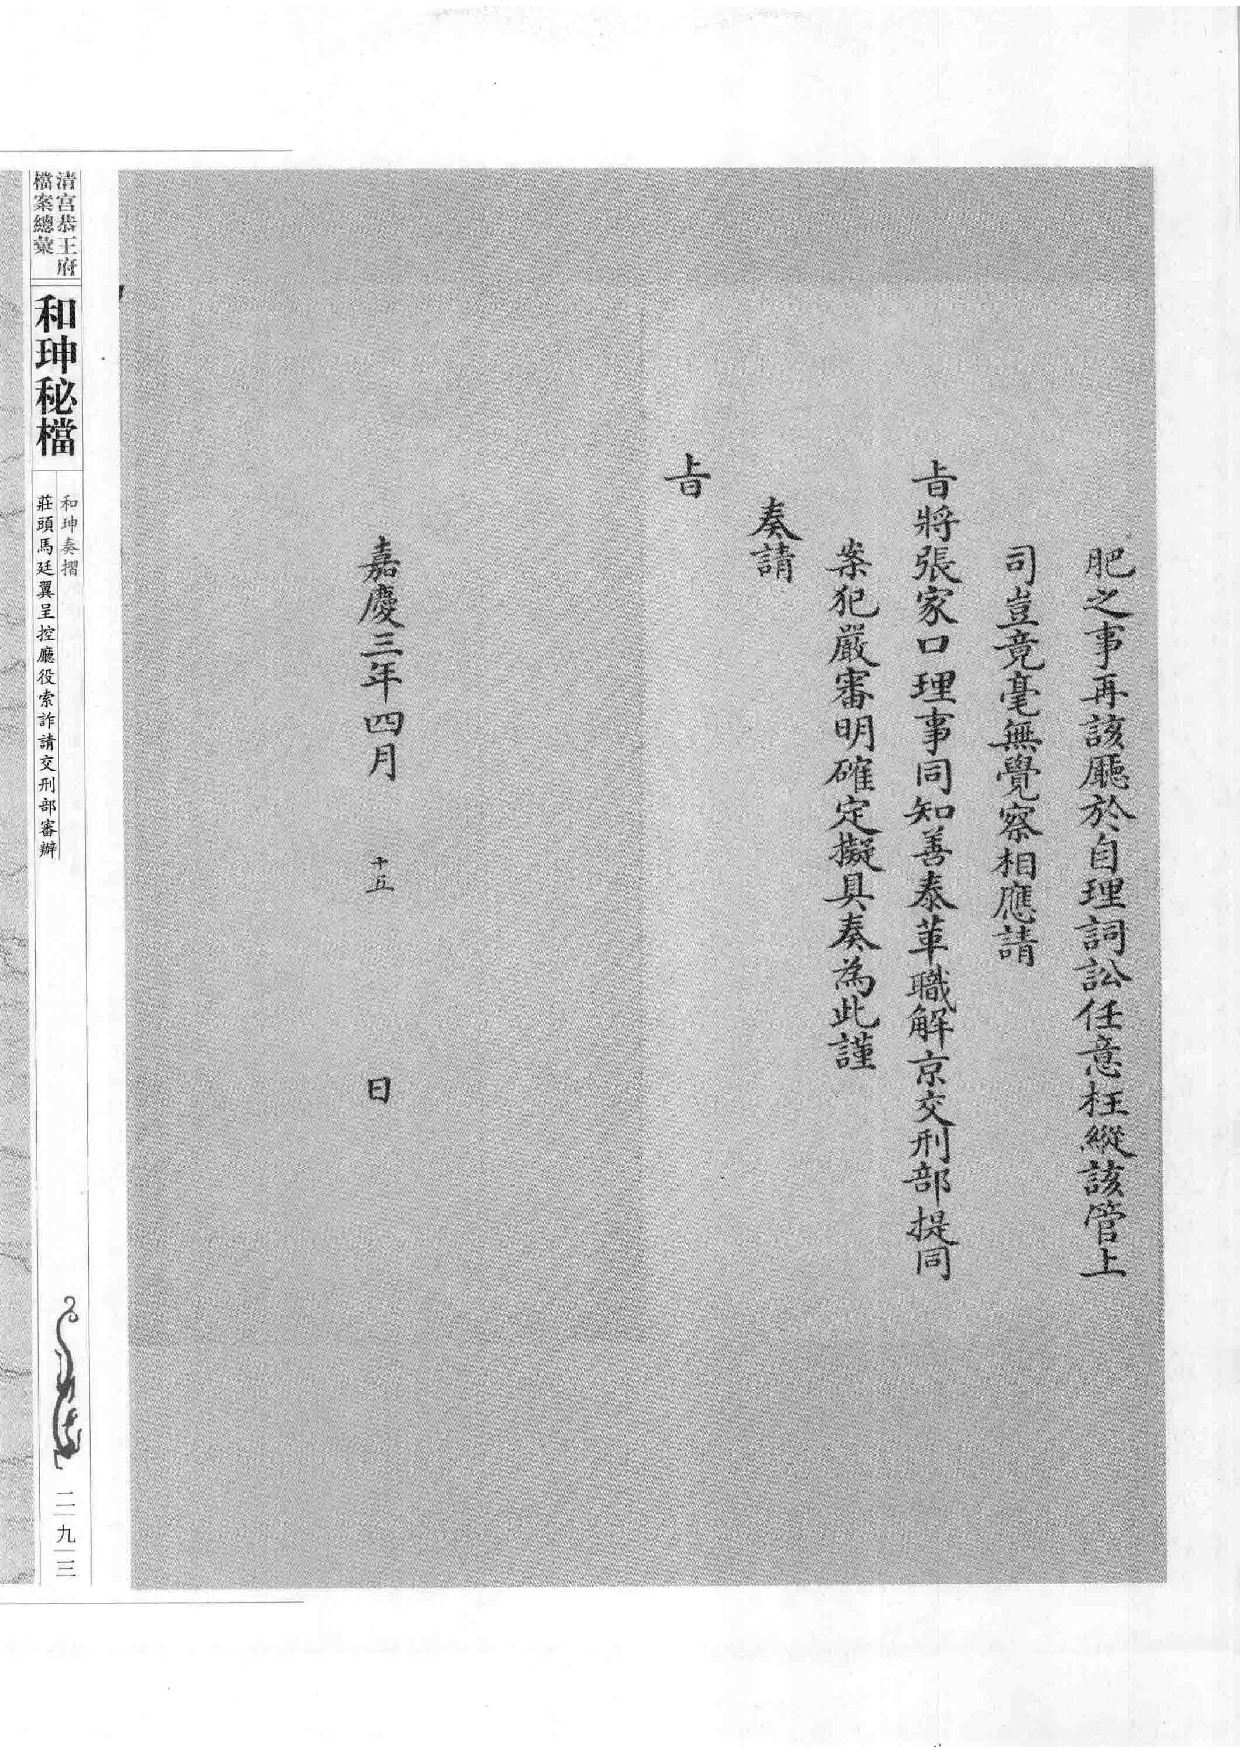 肥之事再該廳於自理詞訟任意枉縱該管上
司豈竟毫無覺察相應請
旨將張家口理事同知善泰革職解京交刑部提同
案犯嚴審明確定擬具奏為此謹
奏請
旨
嘉慶三年四月 十五 日
清宮恭王府
檔案總彙
和珅秘檔
和珅奏摺
莊頭馬廷翼呈控廳役索詐請交刑部審辦
二九三